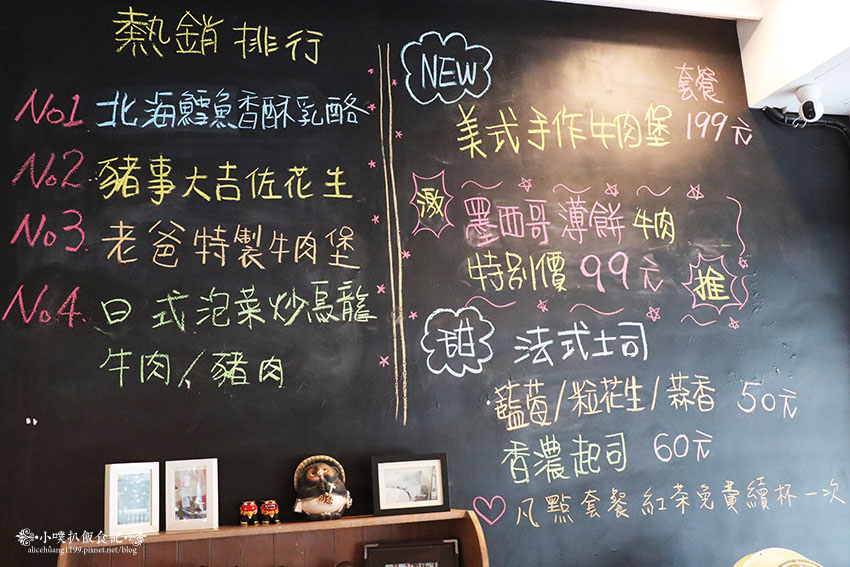 熱銷排行
No1 北海鱈魚香酥乳酪
No2 豬事大吉佐花生
No3. 老爸特製牛肉堡
No4. 日式泡菜炒烏龍
牛肉/豬肉
NEW
套餐
美式手作牛肉堡 199元
激
墨西哥薄餅牛肉
特別價 99元
推
甜 法式土司
·藍莓/粒花生/蒜香 50元
香濃起司 60元
凡點套餐紅茶免費續杯一次
小噗扒飯食記
alicehuang1199.pixnet.net/blog